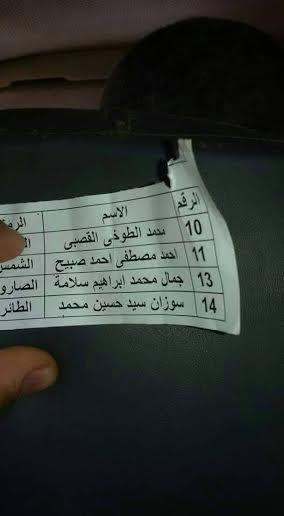 الرقم الاسم
10 محمد الطوخى القصبى
11 احمد مصطفى احمد صبيح الشمس
13 جمال محمد ابراهيم سلامة
14 سوزان سيد حسين محمد